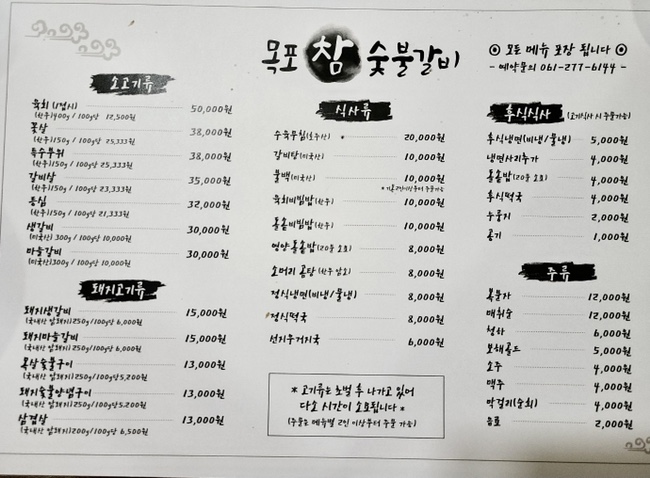 목포 참 숯불갈비
◎ 모든 메뉴 포장 됩니다 ◎
- 예약문의 061-277-6144 -
소고기류
육회 (1접시) 50,000원
(한우)400g / 100g당 12,500원
꽃살 38,000원
(한우)150g / 100g당 25,333원
특수부위 38,000원
(한우)150g / 100g당 25,333원
갈비살 35,000원
(한우)150g / 100g당 23,333원
등심 32,000원
(한우)150g / 100g당 21,333원
생갈비 30,000원
(미국산) 300g / 100g당 10,000원
마늘갈비 30,000원
(미국산)300g / 100g당 10,000원
돼지고기류
돼지생갈비 15,000원
(국내산 암돼지)250g/100g당 6,000원
돼지마늘갈비 15,000원
(국내산 암돼지)250g/100g당 6,000원
목살숯불구이 13,000원
(국내산 암돼지)250g/100g당5,200원
돼지숯불양념구이 13,000원
(국내산 암돼지)250g/100g당5,200원
삼겹살 13,000원
(국내산 암돼지)200g/100g당 6,500원
식사류
수육무침(호주산) 20,000원
갈비탕(미국산) 10,000원
불백(미국산) 10,000원
육회비빔밥(한우) 10,000원
돌솥비빔밥(한우) 10,000원
영양돌솥밥(20분 소요) 8,000원
소머리 곰탕 8,000원
정식냉면(비냉/물냉) 8,000원
정식떡국 8,000원
선지우거지국 6,000원
* 고기류는 초벌 후 나가고 있어
다소 시간이 소요됩니다 *
(주문은 메뉴별 2인 이상부터 주문 가능)
후식식사 (고기식사 시 주문가능)
후식냉면(비냉/물냉) 5,000원
냉면사리추가 4,000원
돌솥밥(20분 소요) 4,000원
후식떡국 4,000원
누룽지 2,000원
공기 1,000원
주류
복분자 12,000원
매취순 12,000원
청하 6,000원
보해골드 5,000원
소주 4,000원
맥주 4,000원
막걸리(순희) 4,000원
음료 2,000원